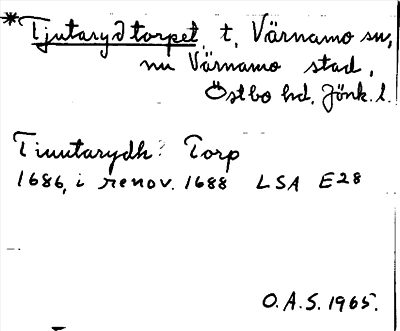 *Tjutarydtorpet, t. Värnamo sn,
nu Värnamo stad,
Östbo hd. Jönk. l.
Tiuutarydh? Torp
1686, i renov. 1688 LSA E28
O.A.S. 1965.